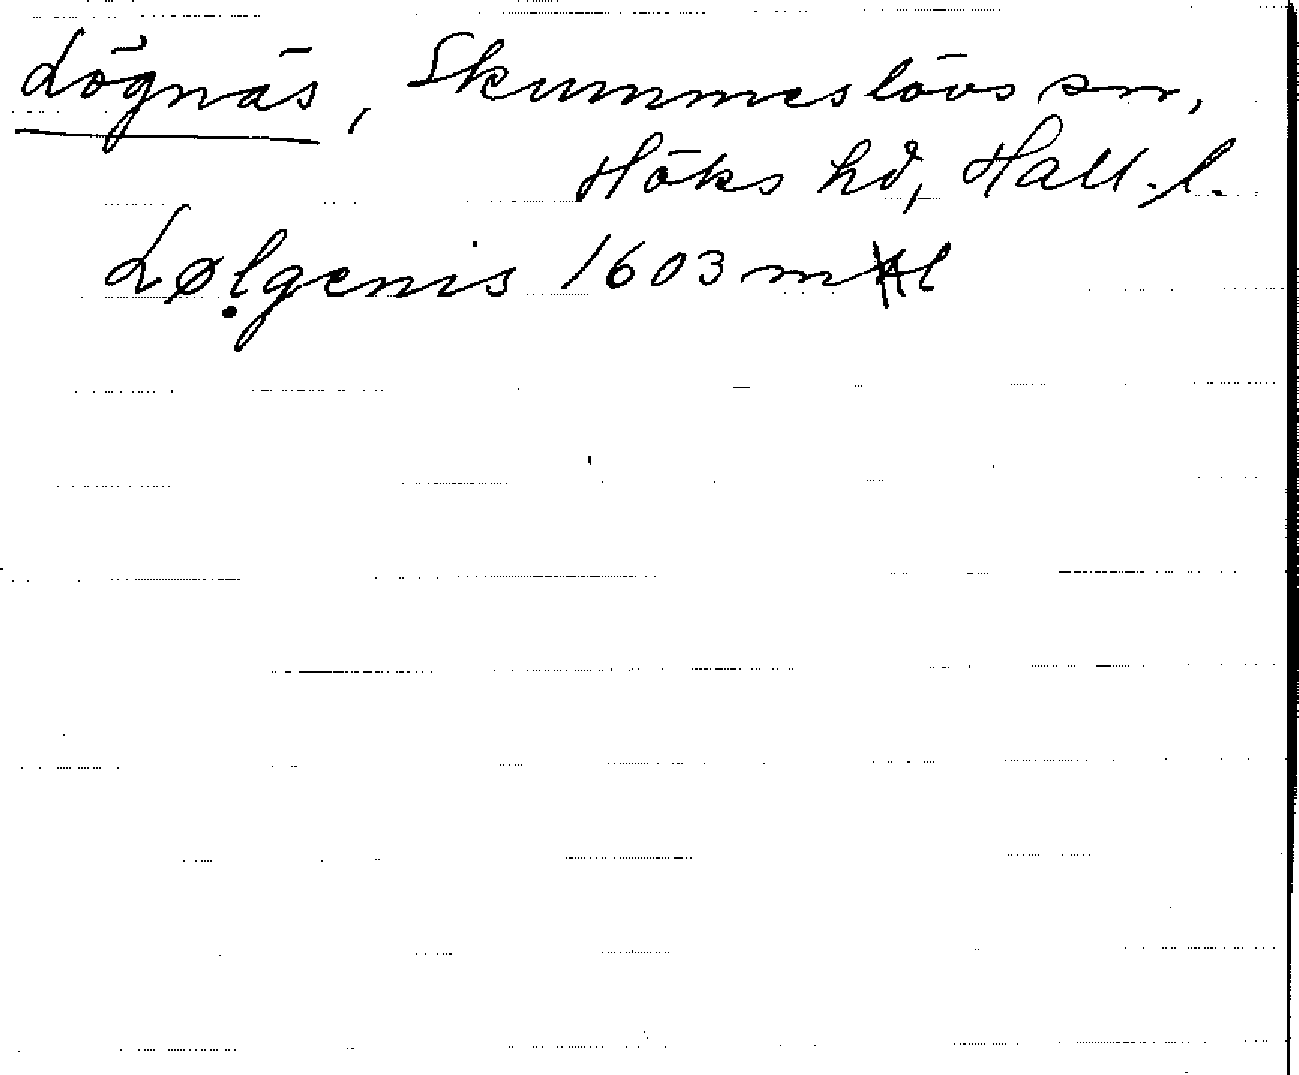 Lögnäs, Skummeslövs sn,
Höks hd, Hall. l.
Løl̤genis 1603 m